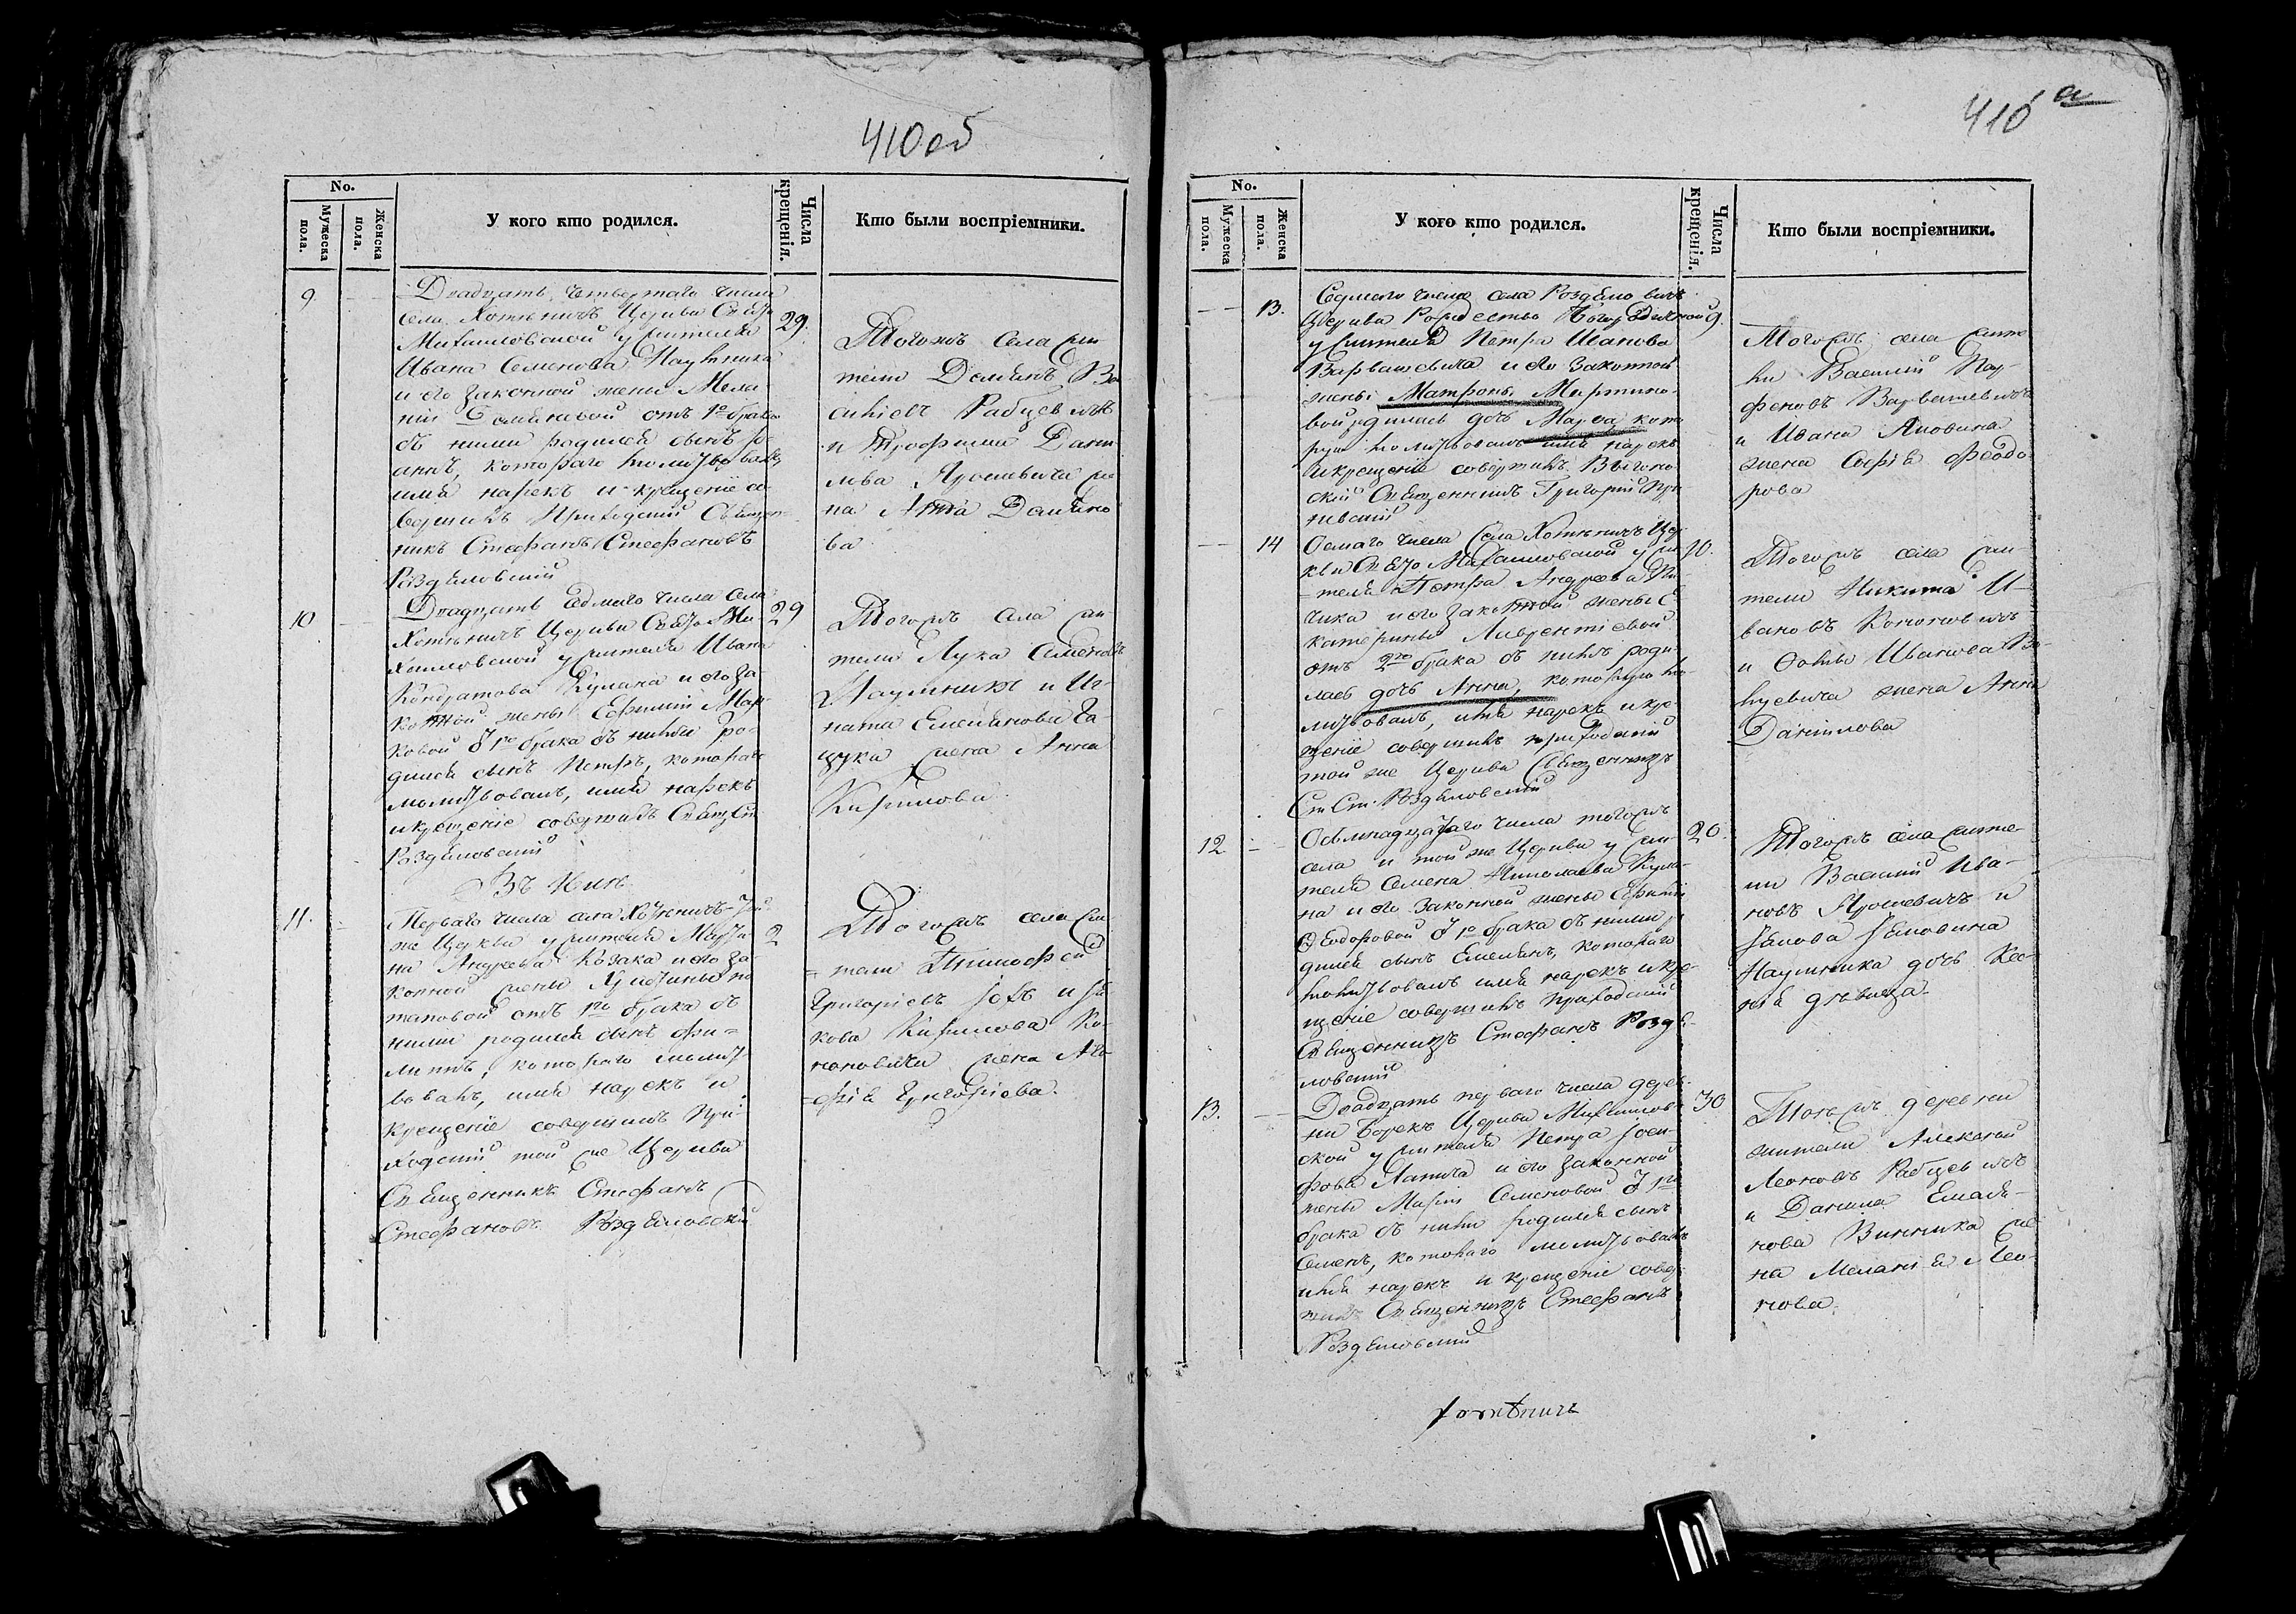 410 об
No.
Мужеска пола.
Женска пола.
У кого кто родился.
Числа крещенія.
Кто были воспріемники.
9
Двадцать четвертаго числа
села Хотыничъ Церкви Свято
Михайловской у жителя
Ивана Семенова Наумчика
и его законной жены Мела
ніи от 1го брака
съ ними родился сынъ
котораго молитвовалъ
имя нарекъ и крещеніе со
вершилъ Приходскій Священ
никъ Стефанъ Стефановъ
Роздяловскій
29.
Тогожъ села жи
тели Демянъ Ва
силіевъ Рабцевичъ
и Трофима Дани
лова Ярошевича же
на Анна Демяно
ва
10
Двадцать седмаго числа села
Хотыничъ Церкви Свято Ми
хайловской у жителя Ивана
Кондратова Кулана и его за
конной жены Ефиміи Мар
ковой от 1го брака съ ними ро
дился сынъ Петръ, котораго
молитвовалъ, имя нарекъ
и крещеніе совершилъ Свящ Ст
Роздяловскій
29
Тогожъ села жи
тели Лука Семеновъ
Наумчикъ и Иг
ната Емельянова Га
цука жена Анна
Кирилова
Въ Іюнѣ
11.
Перваго числа села Хотыничъ той
же Церкви у жителя Марти
на Андреева Козака и его за
конной жены Христины По
таповой отъ 1го брака съ
ними родился сынъ Фи=
липъ, котораго молит
вовалъ, имя нарекъ и
крещеніе совершилъ При
ходскій той же Церкви
Священникъ Стефанъ
Стефановъ Роздяловскій
2
Тогожъ села жи
=тели Тимофей
Григоріевъ и Яа
кова Кирилова Ко
ноновича жена Ага
=фія Григоріева.
410 а
No.
Мужеска пола.
Женска пола.
У кого кто родился.
Числа крещенія.
Кто были воспріемники.
13.
Седмаго числа села Роздяловичъ
Церкви Рождество Богородичной
у жителя Петра Иванова
Варвашевича и его законной
жены Матроны Мартино
вой родилась дочь Марѳа кото
рую молитвовалъ имя нарекъ
и крещеніе совершилъ Выгоно
скій Священникъ Григорій
9.
Тогожъ села жите
ли Василій Пар
феновъ Варвашевичъ
и Ивана Яковина
жена Софія Феодо
рова
14
Осмаго числа Села Хотыничъ Цер
кви Свято Михайловской у жи
теля Петра Андреева
чика и его законной жены Е
катерины Лаврентіевой
отъ 2го брака съ нимъ роди
лась дочь Анна, которую мо
литвовалъ, имя нарекъ и кре
щеніе совершилъ приходскій
той же Церкви Священникъ
Ст Ст. Роздяловскій
10.
Тогожъ села жи
тели Никита И
вановъ Кононовичъ
и Фомы Иванова
жена Анна
Данилова
12
Осьмнадцатаго числа тогожъ
села и той же Церкви у жи
теля Семена Николаева Кула
на и его законной жены Ефиміи
Ѳеодоровой от 1го брака съ ними ро
дился сынъ Емелянъ, котораго
молитвовалъ имя нарекъ и кре
щеніе совершилъ Приходскій
Священникъ Стефанъ Роздя
ловскій
20.
Тогожъ села жите
ли Василій Ива
новъ Ярошевичъ и
Іакова Іаковина
Наумчика дочь Ксе
нія дѣвица
13.
Двадцать перваго числа дерев
ни Борекъ Церкви Михайлов
ской у жителя Петра Іоси
фова Лапича и его законной
жены Маріи Семеновой от 1го
брака съ ними родился сынъ
Семенъ, котораго молитвовалъ
имя нарекъ и крещеніе совер
шилъ Священникъ Стефанъ
Роздяловскій
30
Тойжъ деревни
жители Алексей
Леоновъ Рабцевичъ
и Данила Емеля
нова Винника же
на Меланія Лео
нова
Хотыничъ